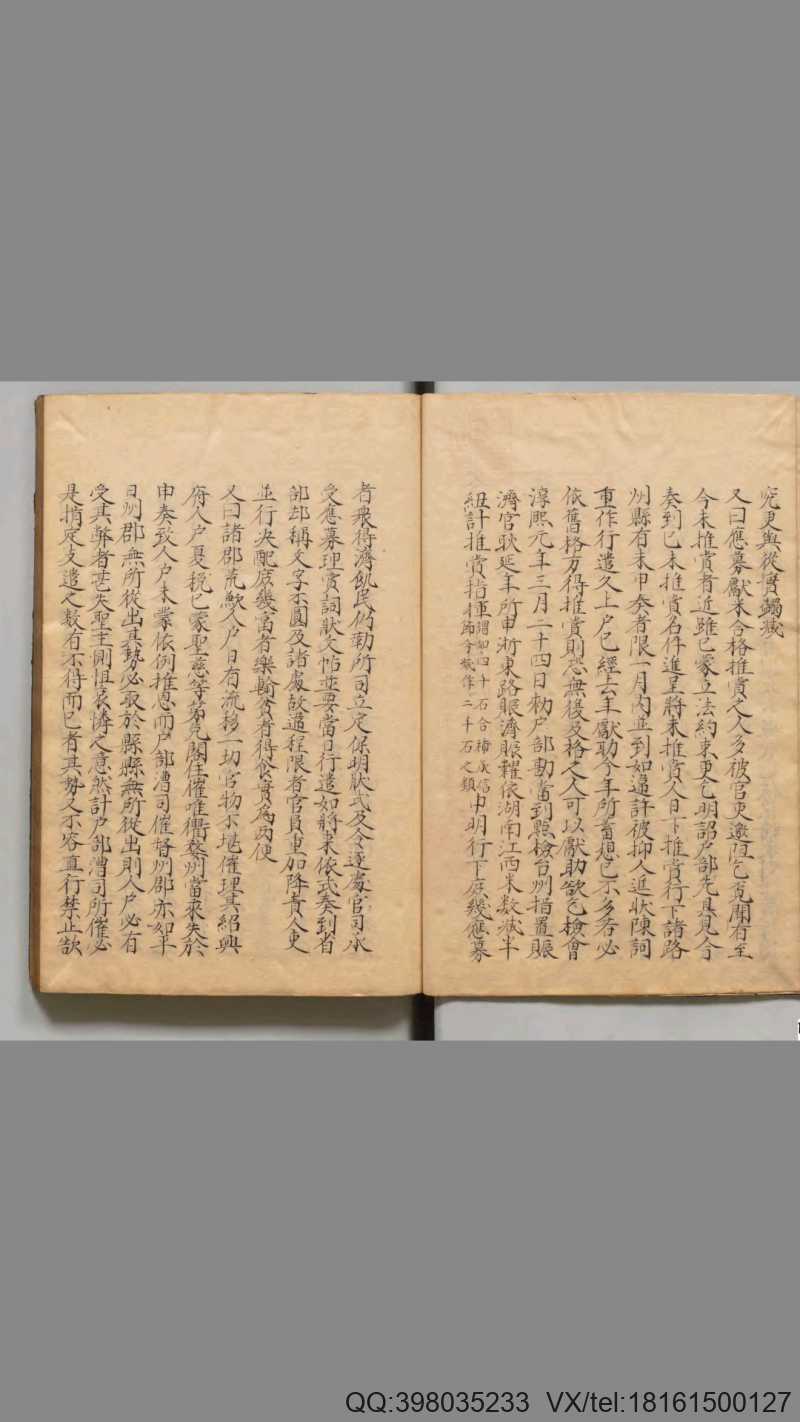 究更與從實蠲減
又曰應募獻米合格推賞之人多被官吏邀阻乞覔關有至
今未推賞者近雖已蒙立法約束更乞明詔户部先具見今
奏到已未推賞名件進呈將未推賞人日下推賞行下諸路
州縣有未申奏者限一月内並到如違許被抑人進狀陳詞
重作行遣久上户已經去年獻助今年所蓄想已不多若必
依舊格方得推賞則恐無復及格之人可以獻助欲乞檢會
淳熙元年三月二十四日勑户部勘當到㸃檢台州措置賑
濟官耿延年所申浙東路賑濟賑糶依湖南江西米数減半
紐計推賞指揮
謂如四十石合補廸功
郎今減作二千石之類
申明行下庶幾應募
者衆得濟飢民仍勒所司立定保明狀式及令逐處官司承
受應募理賞詞狀文帖並要當日行遣如將來依式奏到省
部却稱文字不圓及諸處故違程限者官員重加降責人吏
並行决配庶幾富者樂輸貧者得食實為两便
又曰諸郡荒歉人户日有流移一切官物不堪催理其紹興
府人户夏税已蒙聖慈等第免閣住催唯衢婺州當来失於
申奏致人户未蒙依例推恩而户部漕司催督州郡亦如平
日州郡無所從出其勢必取於縣縣無所從出則人户必有
受其弊者甚失聖主惻怛哀憐之意然計户部漕司所催必
是指定支遣之数有不得而已者其勢又不容直行禁止欲
QQ:398035233 VX/tel:18161500127